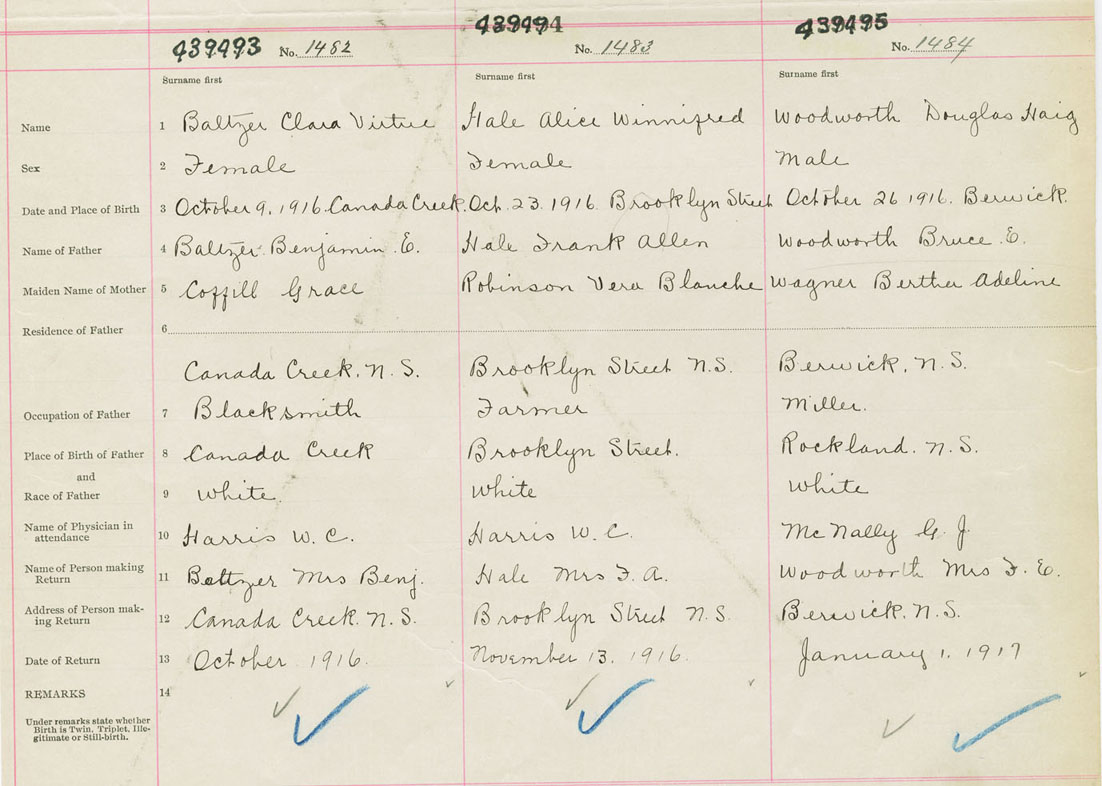 439493 No. 1482 439494 No. 1483 439495 No. 1484
Surname first Surname first Surname first
Name 1 Baltzer Clara Virtue Hale Alice Winnifred Woodworth Douglas Haig
Sex 2 Female Female Male
Date and Place of Birth 3 October 9, 1916. Canada Creek. Oct. 23. 1916. Brooklyn Street October 26 1916. Berwick.
Name of Father 4 Baltzer Benjamin E. Hale Frank Allen Woodworth Bruce E.
Maiden Name of Mother 5 Coffill Grace Robinson Vera Blanche Wagner Bertha Adeline
Residence of Father 6
Canada Creek. N.S. Brooklyn Street N.S. Berwick, N.S.
Occupation of Father 7 Blacksmith Farmer Miller.
Place of Birth of Father 8 Canada Creek Brooklyn Street. Rockland. N.S.
and
Race of Father 9 White. White White
Name of Physician in
attendance 10 Harris W. C. Harris W. C. McNally G. J
Name of Person making
Return 11 Baltzer Mrs Benj. Hale Mrs F. A. Woodworth Mrs F. E.
Address of Person mak-
ing Return 12 Canada Creek. N.S. Brooklyn Street N.S. Berwick. N.S.
Date of Return 13 October 1916. November 13. 1916. January 1. 1917
REMARKS 14
Under remarks state whether
Birth is Twin, Triplet, Ille-
gitimate or Still-birth.